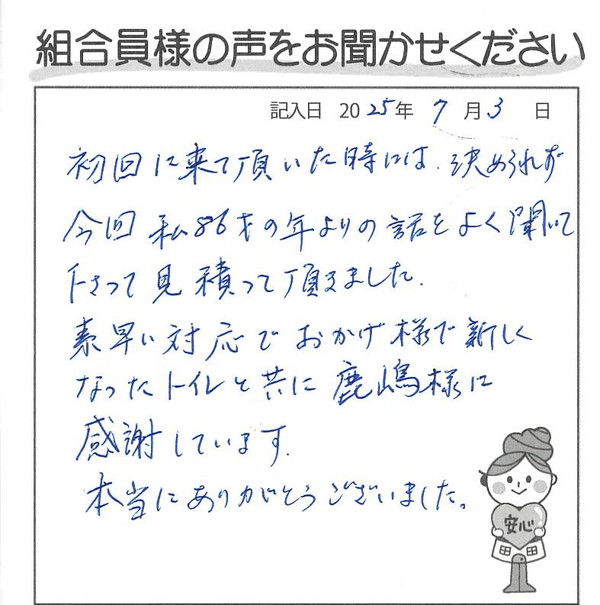 組合員様の声をお聞かせください
記入日 2025年 7月 3日
初回に来て頂いた時には、決められず
今回 私86才の年よりの話をよく聞いて
下さって見積って頂きました。
素早い対応でおかげ様で新しく
なったトイレと共に鹿嶋様に
感謝しています。
本当にありがとうございました。
安心